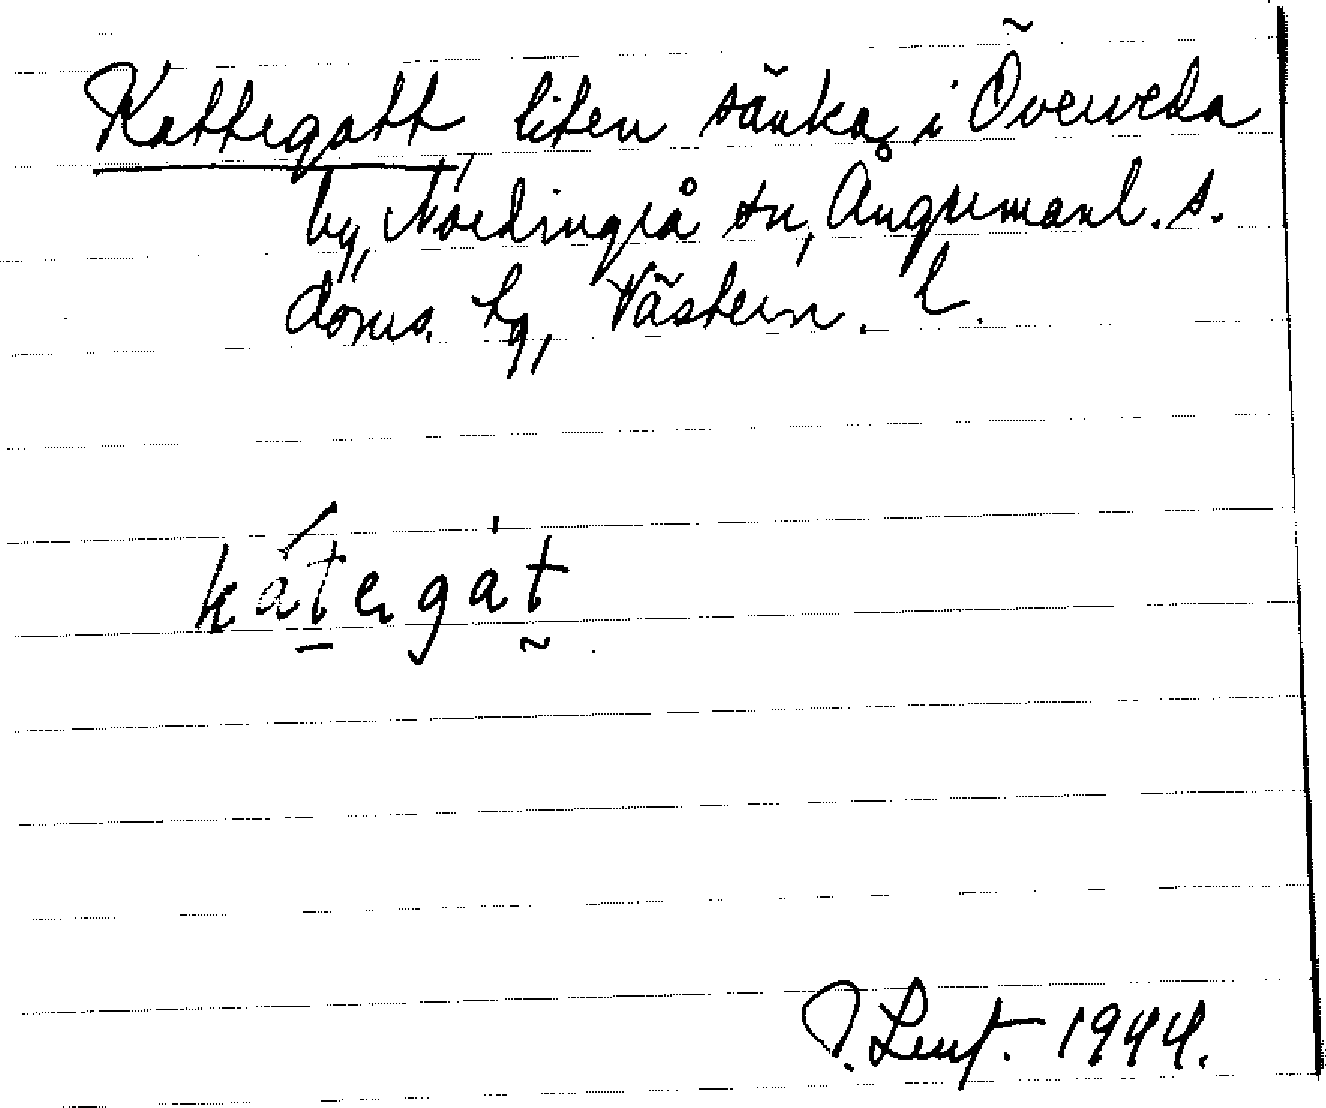 Kattegatt, liten sänka i Överveda
by, Nordingrå sn, Ångermanl. s.
doms. tg, Västern. l.
kátegàt
1944.